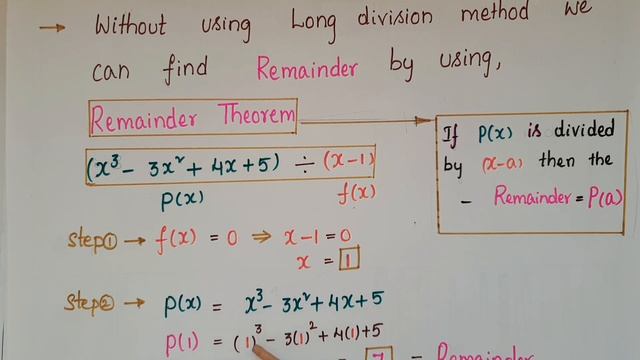 → Without using Long division method we
can find Remainder by using,
Remainder Theorem →
If P(x) is divided
by (x-a) then the
- Remainder = P(a)
(x³ - 3x² + 4x + 5) ÷ (x-1)
P(x) f(x)
Step① → f(x) = 0 ⇒ x-1 = 0
x = 1
Step② → P(x) = x³ - 3x² + 4x + 5
P(1) = (1)³ - 3(1)² + 4(1) + 5